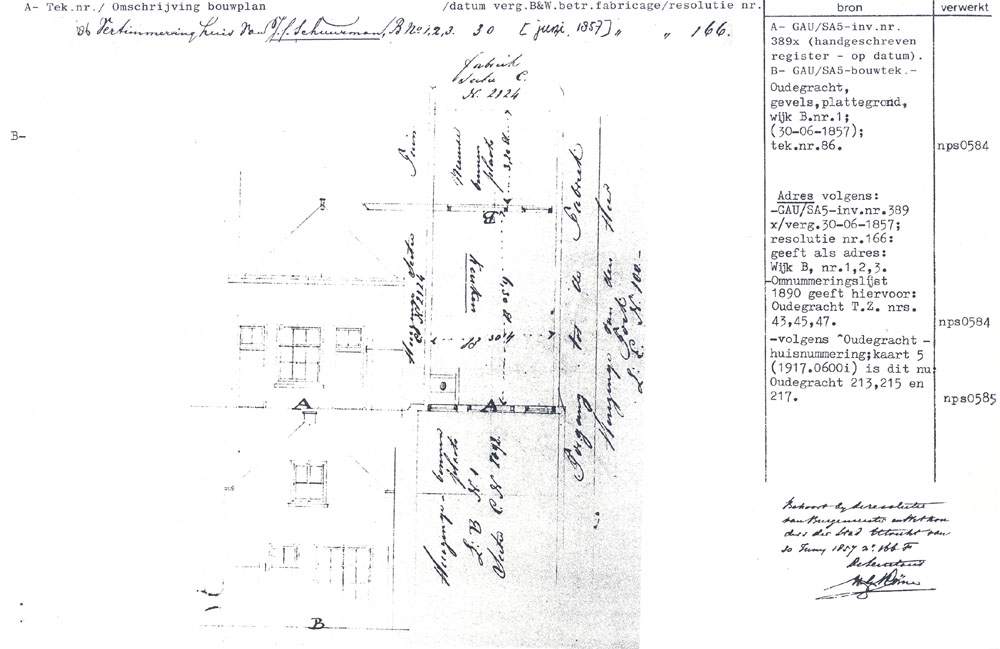 A- Tek.nr./ Omschrijving bouwplan /datum verg.B&W.betr.fabricage/resolutie nr.
bron
verwerkt
86 Vertimmering huis van J.f. Schuurman, B No 1,2,3. 30 [junie, 1857] „ „ 166.
A- GAU/SA5-inv.nr.
389x (handgeschreven
register - op datum).
B- GAU/SA5-bouwtek.-
Oudegracht,
gevels,plattegrond,
wijk B.nr.1;
(30-06-1857);
tek.nr.86.
nps0584
Adres volgens:
-GAU/SA5-inv.nr.389
x/verg.30-06-1857;
resolutie nr.166:
geeft als adres:
Wijk B, nr.1,2,3.
-Omnummeringslijst
1890 geeft hiervoor:
Oudegracht T.Z. nrs.
43,45,47.
nps0584
-volgens ^Oudegracht -
huisnummering;kaart 5
(1917.0600i) is dit nu
Oudegracht 213,215 en
217.
nps0585
B-
Fabriek
Sectie C.
N. 2124
Tuin
binnen
plaats
3,20 El
B
Keuken
6,50 El
4,05 El
A
A
B
Poort
L. E No 100.-
Ingang tot de Fabriek
van den Heer
binnen
plaats
L. B N. 1
Sectie C N.
Behoort by de resolutie
van Burgemeester en Wethou
ders der Stad Utrecht van
30 Juny 1857 No. 166 F
De Secretaris